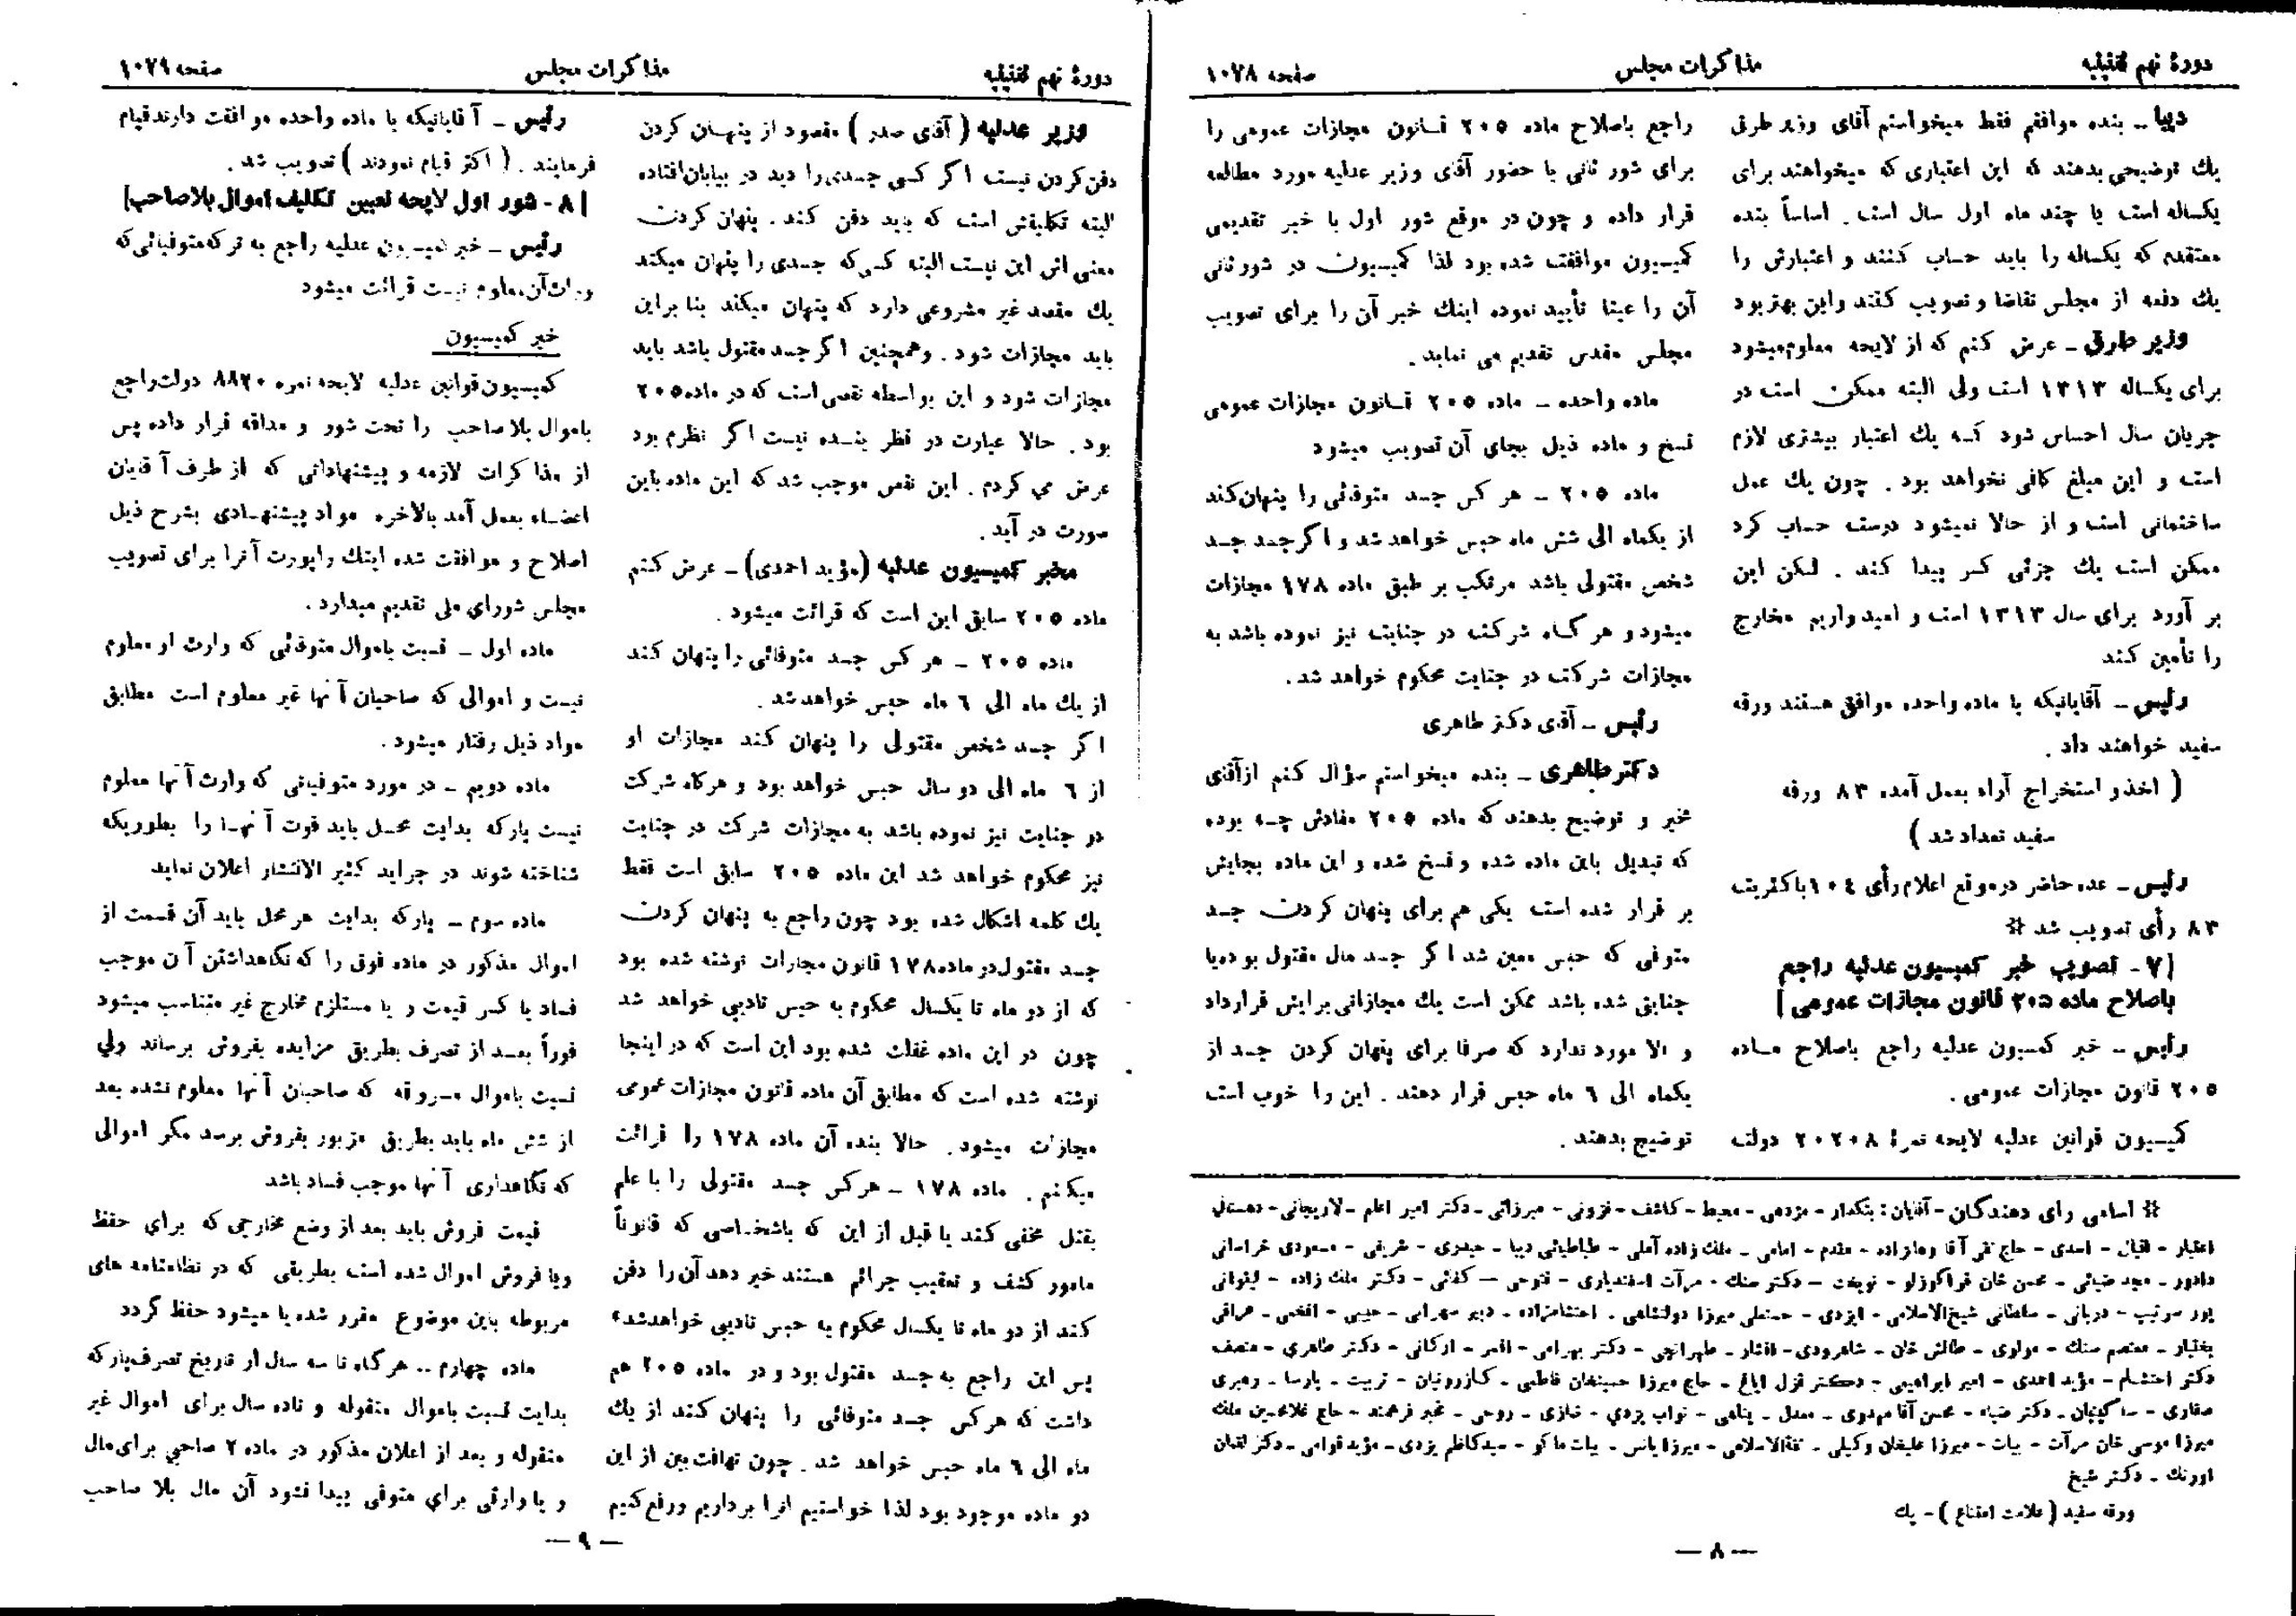 دورهٔ نهم تقنینیه
مذاکرات مجلس
صفحه ۱۰۷۸
دیبا ــ بنده موافقم فقط میخواستم آقای وزیر طرق
یك توضیحی بدهند که این اعتباری که میخواهند برای
یکساله است یا چند ماه اول سال است. اساساً بنده
معتقدم که یکساله را باید حساب کنند و اعتبارش را
یك دفعه از مجلس تقاضا و تصویب کنند و این بهتر بود
وزیر طرق ــ عرض کنم که از لایحه معلوم میشود
برای یکساله ۱۳۱۳ است ولی البته ممکن است در
جریان سال احساس شود که یك اعتبار بیشتری لازم
است و این مبلغ کافی نخواهد بود. چون یك عمل
ساختمانی است و از حالا نمیشود درست حساب کرد
ممکن است یك جزئی کسر پیدا کند. لیکن این
بر آورد برای سال ۱۳۱۳ است و امیدواریم مخارج
را تأمین کند
رئیس ــ آقایانیکه با ماده واحده موافق هستند ورقه
سفید خواهند داد.
( اخذ و استخراج آراء بعمل آمده ۸۳ ورقه
سفید تعداد شد )
رئیس ــ عده حاضر در موقع اعلام رأی ۱۰٤ با کثریت
۸۳ رأی تصویب شد *
[۷ـ تصویب خبر کمیسیون عدلیه راجع
باصلاح ماده ۲۰۵ قانون مجازات عمومی]
رئیس ــ خبر کمسیون عدلیه راجع باصلاح ماده
۲۰۵ قانون مجازات عمومی.
کمیسیون قوانین عدلیه لایحه نمرهٔ ۲۰۲۰۸ دولت
راجع باصلاح ماده ۲۰۵ قانون مجازات عمومی را
برای شور ثانی با حضور آقای وزیر عدلیه مورد مطالعه
قرار داده و چون در موقع شور اول با خبر تقدیمی
کمیسیون موافقت شده بود لذا کمیسیون در شور ثانی
آن را عینا تأیید نموده اینك خبر آن را برای تصویب
مجلس مقدس تقدیم می نماید.
ماده واحده ــ ماده ۲۰۵ قانون مجازات عمومی
نسخ و ماده ذیل بجای آن تصویب میشود
ماده ۲۰۵ ــ هر کس جسد متوفائی را پنهان کند
از یکماه الی شش ماه حبس خواهد شد و اگر جسد جسد
شخص مقتولی باشد مرتکب بر طبق ماده ۱۷۸ مجازات
میشود و هر گاه شرکت در جنایت نیز نموده باشد به
مجازات شرکت در جنایت محکوم خواهد شد.
رئیس ــ آقای دکتر طاهری
دکتر طاهری ــ بنده میخواستم سؤال کنم از آقای
مخبر و توضیح بدهند که ماده ۲۰۵ مفادش چه بوده
که تبدیل باین ماده شده و نسخ شده و این ماده بجایش
بر قرار شده است یکی هم برای پنهان کردن جسد
متوفی که حبس معین شد اگر جسد مال مقتول بوده یا
جنایتی شده باشد ممکن است یك مجازاتی برایش قرارداد
و الا مورد ندارد که صرفا برای پنهان کردن جسد از
یکماه الی ٦ ماه حبس قرار دهند. این را خوب است
توضیح بدهند.
* اسامی رای دهندگان ـ آقایان: بنکدار ـ مژدهی ـ محیط ـ کاشف ـ فزونی ـ میرزائی ـ دکتر امیر اعلم ـ لاریجانی ـ دهستانی
اعتبار ـ اقبال ـ اسدی ـ حاج تقی آقا وهابزاده ـ مقدم ـ امامی ـ ملك زاده آملی ـ طباطبائی دیبا ـ حیدری ـ شریفی ـ مسعودی خراسانی
دادور ـ مجد ضیائی ـ محسن خان قراگوزلو ـ نوبخت ـ دکتر سنك ـ مرآت اسفندیاری ـ فتوحی ـ کفائی ـ دکتر ملك زاده ـ لیقوانی
پور سرتیپ ـ دربانی ـ سلطانی شیخ‌الاسلامی ـ ایزدی ـ حسنعلی میرزا دولتشاهی ـ احتشامزاده ـ دبیر سهرابی ـ حبیبی ـ افخمی ـ عراقی
بختیار ـ معتصم سنك ـ مولوی ـ طالش خان ـ شاهرودی ـ افشار ـ طهرانچی ـ دکتر بهرامی ـ افسر ـ ارکانی ـ دکتر طاهری ـ منصف
دکتر احتشام ـ مؤید احمدی ـ امیر ابراهیمی ـ دکتر قزل ایاغ ـ حاج میرزا حسینخان فاطمی ـ کازرونیان ـ تربیت ـ پارسا ـ رهبری
صفاری ـ ساگینیان ـ دکتر ضیاء ـ محسن آقا مهدوی ـ معدل ـ پناهی ـ نواب یزدی ـ نمازی ـ روحی ـ مخبر فرهمند ـ حاج غلامحسین ملك
میرزا موسی خان مرآت ـ بیات ـ میرزا علیخان وکیلی ـ ثقةالاسلامی ـ میرزا یانس ـ بیات ماکو ـ سید کاظم یزدی ـ مؤید قوامی ـ دکتر لقمان
اورنك ـ دکتر شیخ
ورقه سفید ( علامت امتناع ) ـ یك
ــ ۸ ــ
دورهٔ نهم تقنینیه
مذاکرات مجلس
صفحه ۱۰۷۹
وزیر عدلیه ( آقای صدر ) مقصود از پنهان کردن
دفن کردن نیست اگر کسی جسدی را دید در بیابان افتاده
البته تکلیفش است که باید دفن کند. پنهان کردن
معنی اش این نیست البته کسی که جسدی را پنهان میکند
یك مقصد غیر مشروعی دارد که پنهان میکند بنا براین
باید مجازات شود. و همچنین اگر جسد مقتول باشد باید
مجازات شود و این بواسطه نقصی است که در ماده ۲۰۵
بود. حالا عبارت در نظر بنده نیست اگر نظرم بود
عرض می کردم. این نقص موجب شد که این ماده باین
صورت در آید.
مخبر کمیسیون عدلیه (مؤید احمدی) ــ عرض کنم
ماده ۲۰۵ سابق این است که قرائت میشود.
ماده ۲۰۵ ــ هر کس جسد متوفائی را پنهان کند
از یك ماه الی ٦ ماه حبس خواهد شد.
اگر جسد شخص مقتولی را پنهان کند مجازات او
از ٦ ماه الی دو سال حبس خواهد بود و هرگاه شرکت
در جنایت نیز نموده باشد به مجازات شرکت در جنایت
نیز محکوم خواهد شد این ماده ۲۰۵ سابق است فقط
یك کلمه اشکال شده بود چون راجع به پنهان کردن
جسد مقتول در ماده ۱۷۸ قانون مجازات نوشته شده بود
که از دو ماه تا یکسال محکوم به حبس تادیبی خواهد شد
چون در این ماده غفلت شده بود این است که در اینجا
نوشته شده است که مطابق آن ماده قانون مجازات عمومی
مجازات میشود. حالا بنده آن ماده ۱۷۸ را قرائت
میکنم. ماده ۱۷۸ ــ هر کس جسد مقتولی را با علم
بقتل مخفی کند یا قبل از این که باشخاصی که قانوناً
مامور کشف و تعقیب جرائم هستند خبر دهد آن را دفن
کند از دو ماه تا یکسال محکوم به حبس تادیبی خواهد شد،
پس این راجع به جسد مقتول بود و در ماده ۲۰۵ هم
داشت که هر کس جسد متوفائی را پنهان کند از یك
ماه الی ٦ ماه حبس خواهد شد. چون تهافت بین از این
دو ماده موجود بود لذا خواستیم آنرا برداریم و رفع کنیم
رئیس ــ آقایانیکه با ماده واحده موافقت دارند قیام
فرمایند. ( اکثر قیام نمودند ) تصویب شد.
[۸ ـ شور اول لایحه تعیین تکلیف اموال بلاصاحب]
رئیس ــ خبر کمیسیون عدلیه راجع به ترکه متوفیاتی که
وراث آن معلوم نیست قرائت میشود
خبر کمیسیون
کمیسیون قوانین عدلیه لایحه نمره ۸۸۲۰ دولت راجع
باموال بلا صاحب را تحت شور و مداقه قرار داده پس
از مذاکرات لازمه و پیشنهاداتی که از طرف آقایان
اعضاء بعمل آمد بالاخره مواد پیشنهادی بشرح ذیل
اصلاح و موافقت شده اینك راپورت آنرا برای تصویب
مجلس شورای ملی تقدیم میدارد.
ماده اول ــ نسبت باموال متوفائی که وارث او معلوم
نیست و اموالی که صاحبان آنها غیر معلوم است مطابق
مواد ذیل رفتار میشود.
ماده دویم ــ در مورد متوفیاتی که وارث آنها معلوم
نیست پارکه بدایت محل باید فوت آنها را بطوریکه
شناخته شوند در جراید کثیر الانتشار اعلان نماید
ماده سوم ــ پارکه بدایت هر محل باید آن قسمت از
اموال مذکور در ماده فوق را که نگاهداشتن آن موجب
فساد یا کسر قیمت و یا مستلزم مخارج غیر متناسب میشود
فوراً بعد از تصرف بطریق مزایده بفروش برساند ولی
نسبت باموال مسروقه که صاحبان آنها معلوم نشده بعد
از شش ماه باید بطریق مزبور بفروش برسد مگر اموالی
که نگاهداری آنها موجب فساد باشد
قیمت فروش باید بعد از وضع مخارجی که برای حفظ
و یا فروش اموال شده است بطریقی که در نظامنامه های
مربوطه باین موضوع مقرر شده یا میشود حفظ گردد
ماده چهارم .. هر گاه تا سه سال از تاریخ تصرف پارکه
بدایت نسبت باموال منقوله و تا ده سال برای اموال غیر
منقوله و بعد از اعلان مذکور در ماده ۲ صاحبی برای مال
و یا وارثی برای متوفی پیدا نشود آن مال بلا صاحب
ــ ۹ ــ